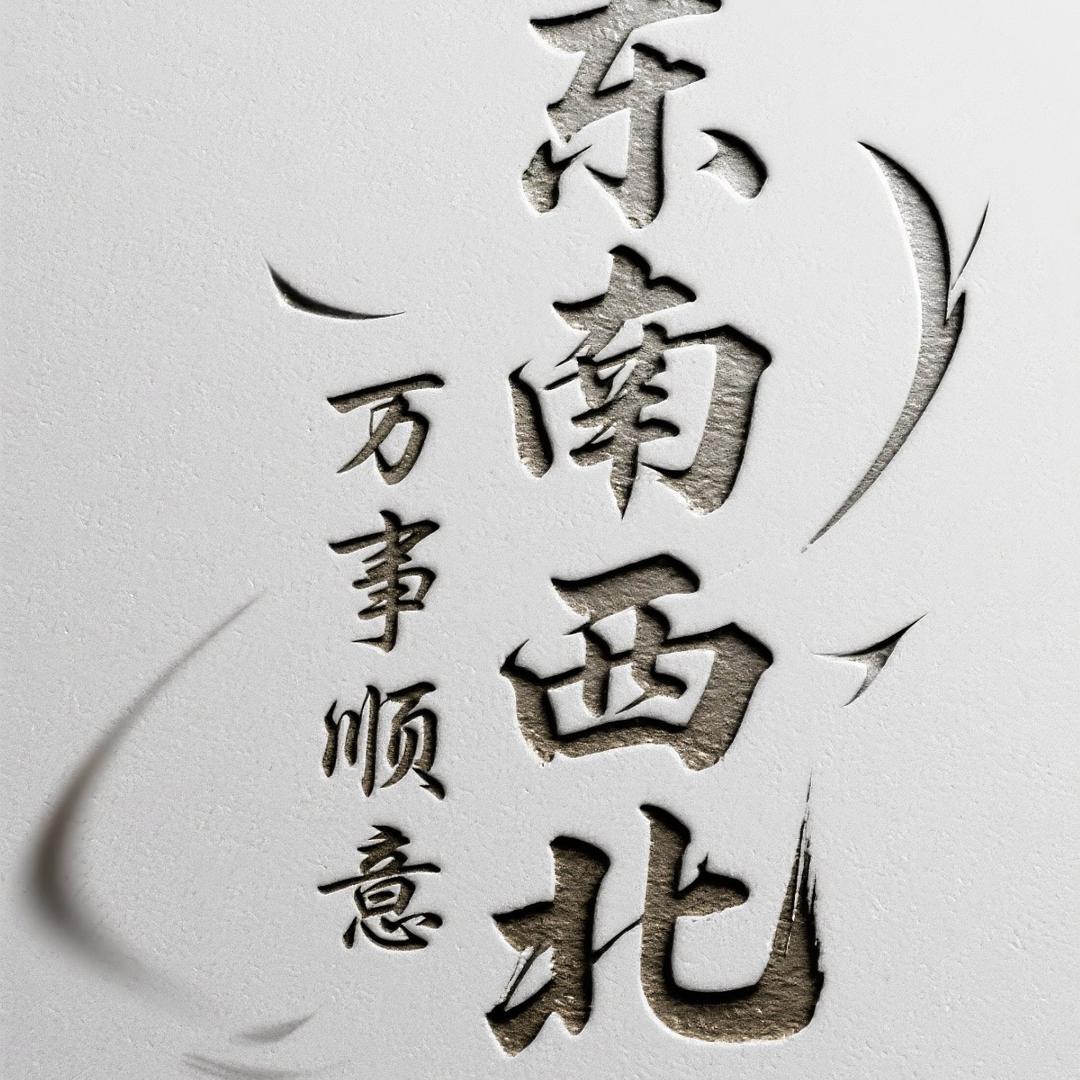 东南西北
万事顺意